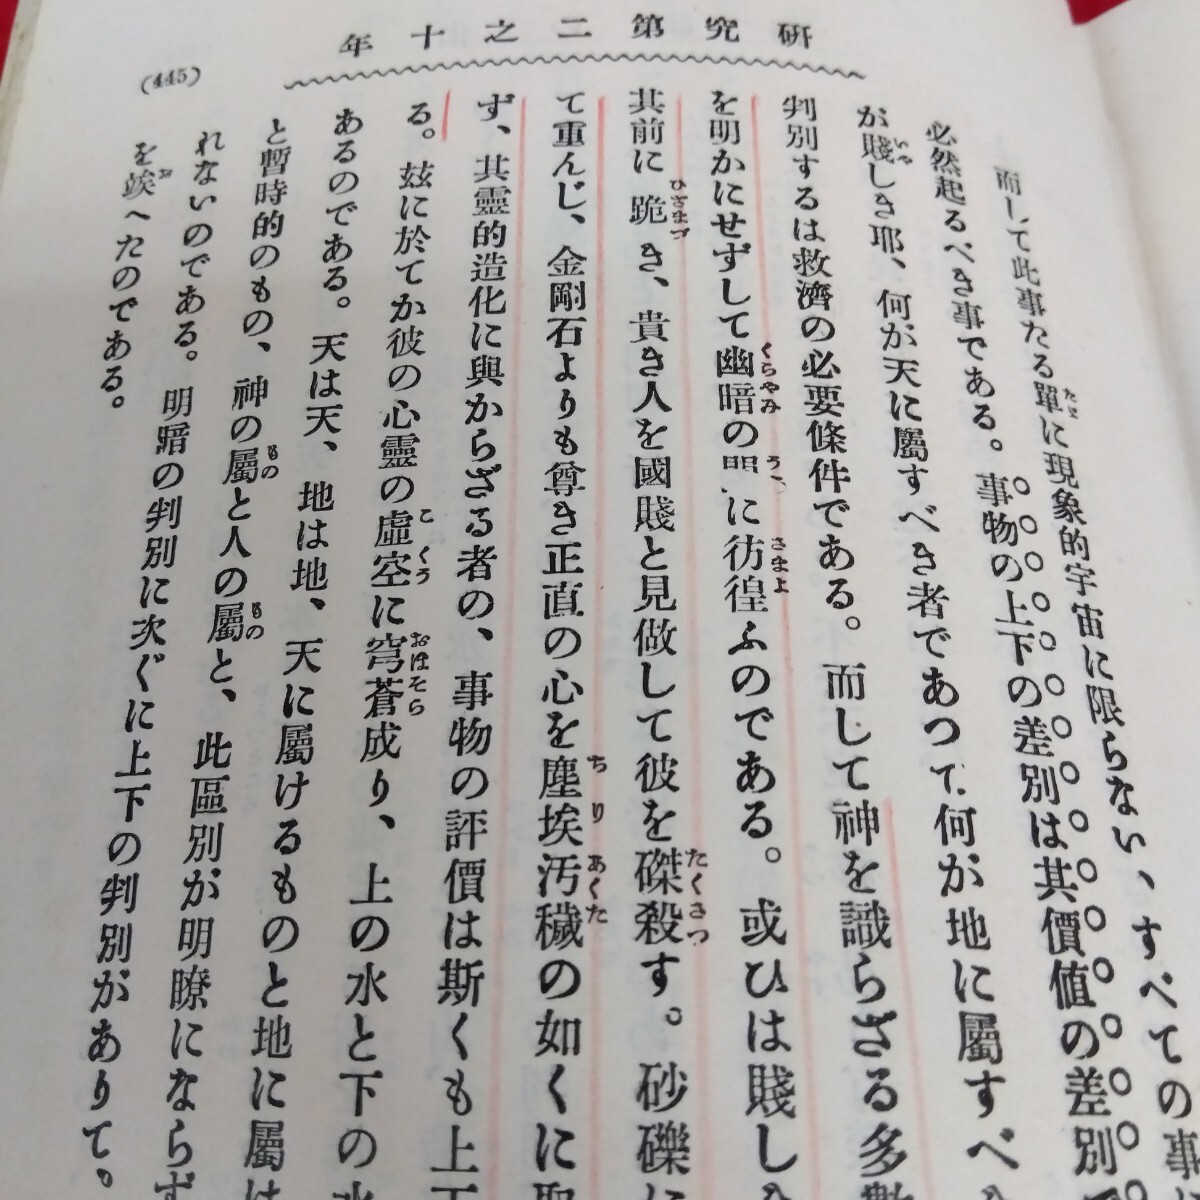 年十之二第究研
(445)
而して此事たる單に現象的宇宙に限らない、すべての事
必然起るべき事である。事物の上下の差別は其價値の差別
が賤しき耶、何が天に屬すべき者であつて、何が地に屬すべ
判別するは救濟の必要條件である。而して神を識らざる多數
を明かにせずして幽暗の間に彷徨ふのである。或ひは賤し
其前に跪き、貴き人を國賤と見做して彼を磔殺す。砂礫に
て重んじ、金剛石よりも尊き正直の心を塵埃汚穢の如くに
ず、其靈的造化に與からざる者の、事物の評價は斯くも上下
る。玆に於てか彼の心靈の虛空に穹蒼成り、上の水と下の水
あるのである。天は天、地は地、天に屬けるものと地に屬
と暫時的のもの、神の屬と人の屬と、此區別が明瞭にならず
れないのである。明暗の判別に次ぐに上下の判別がありて。
を竢へたのである。